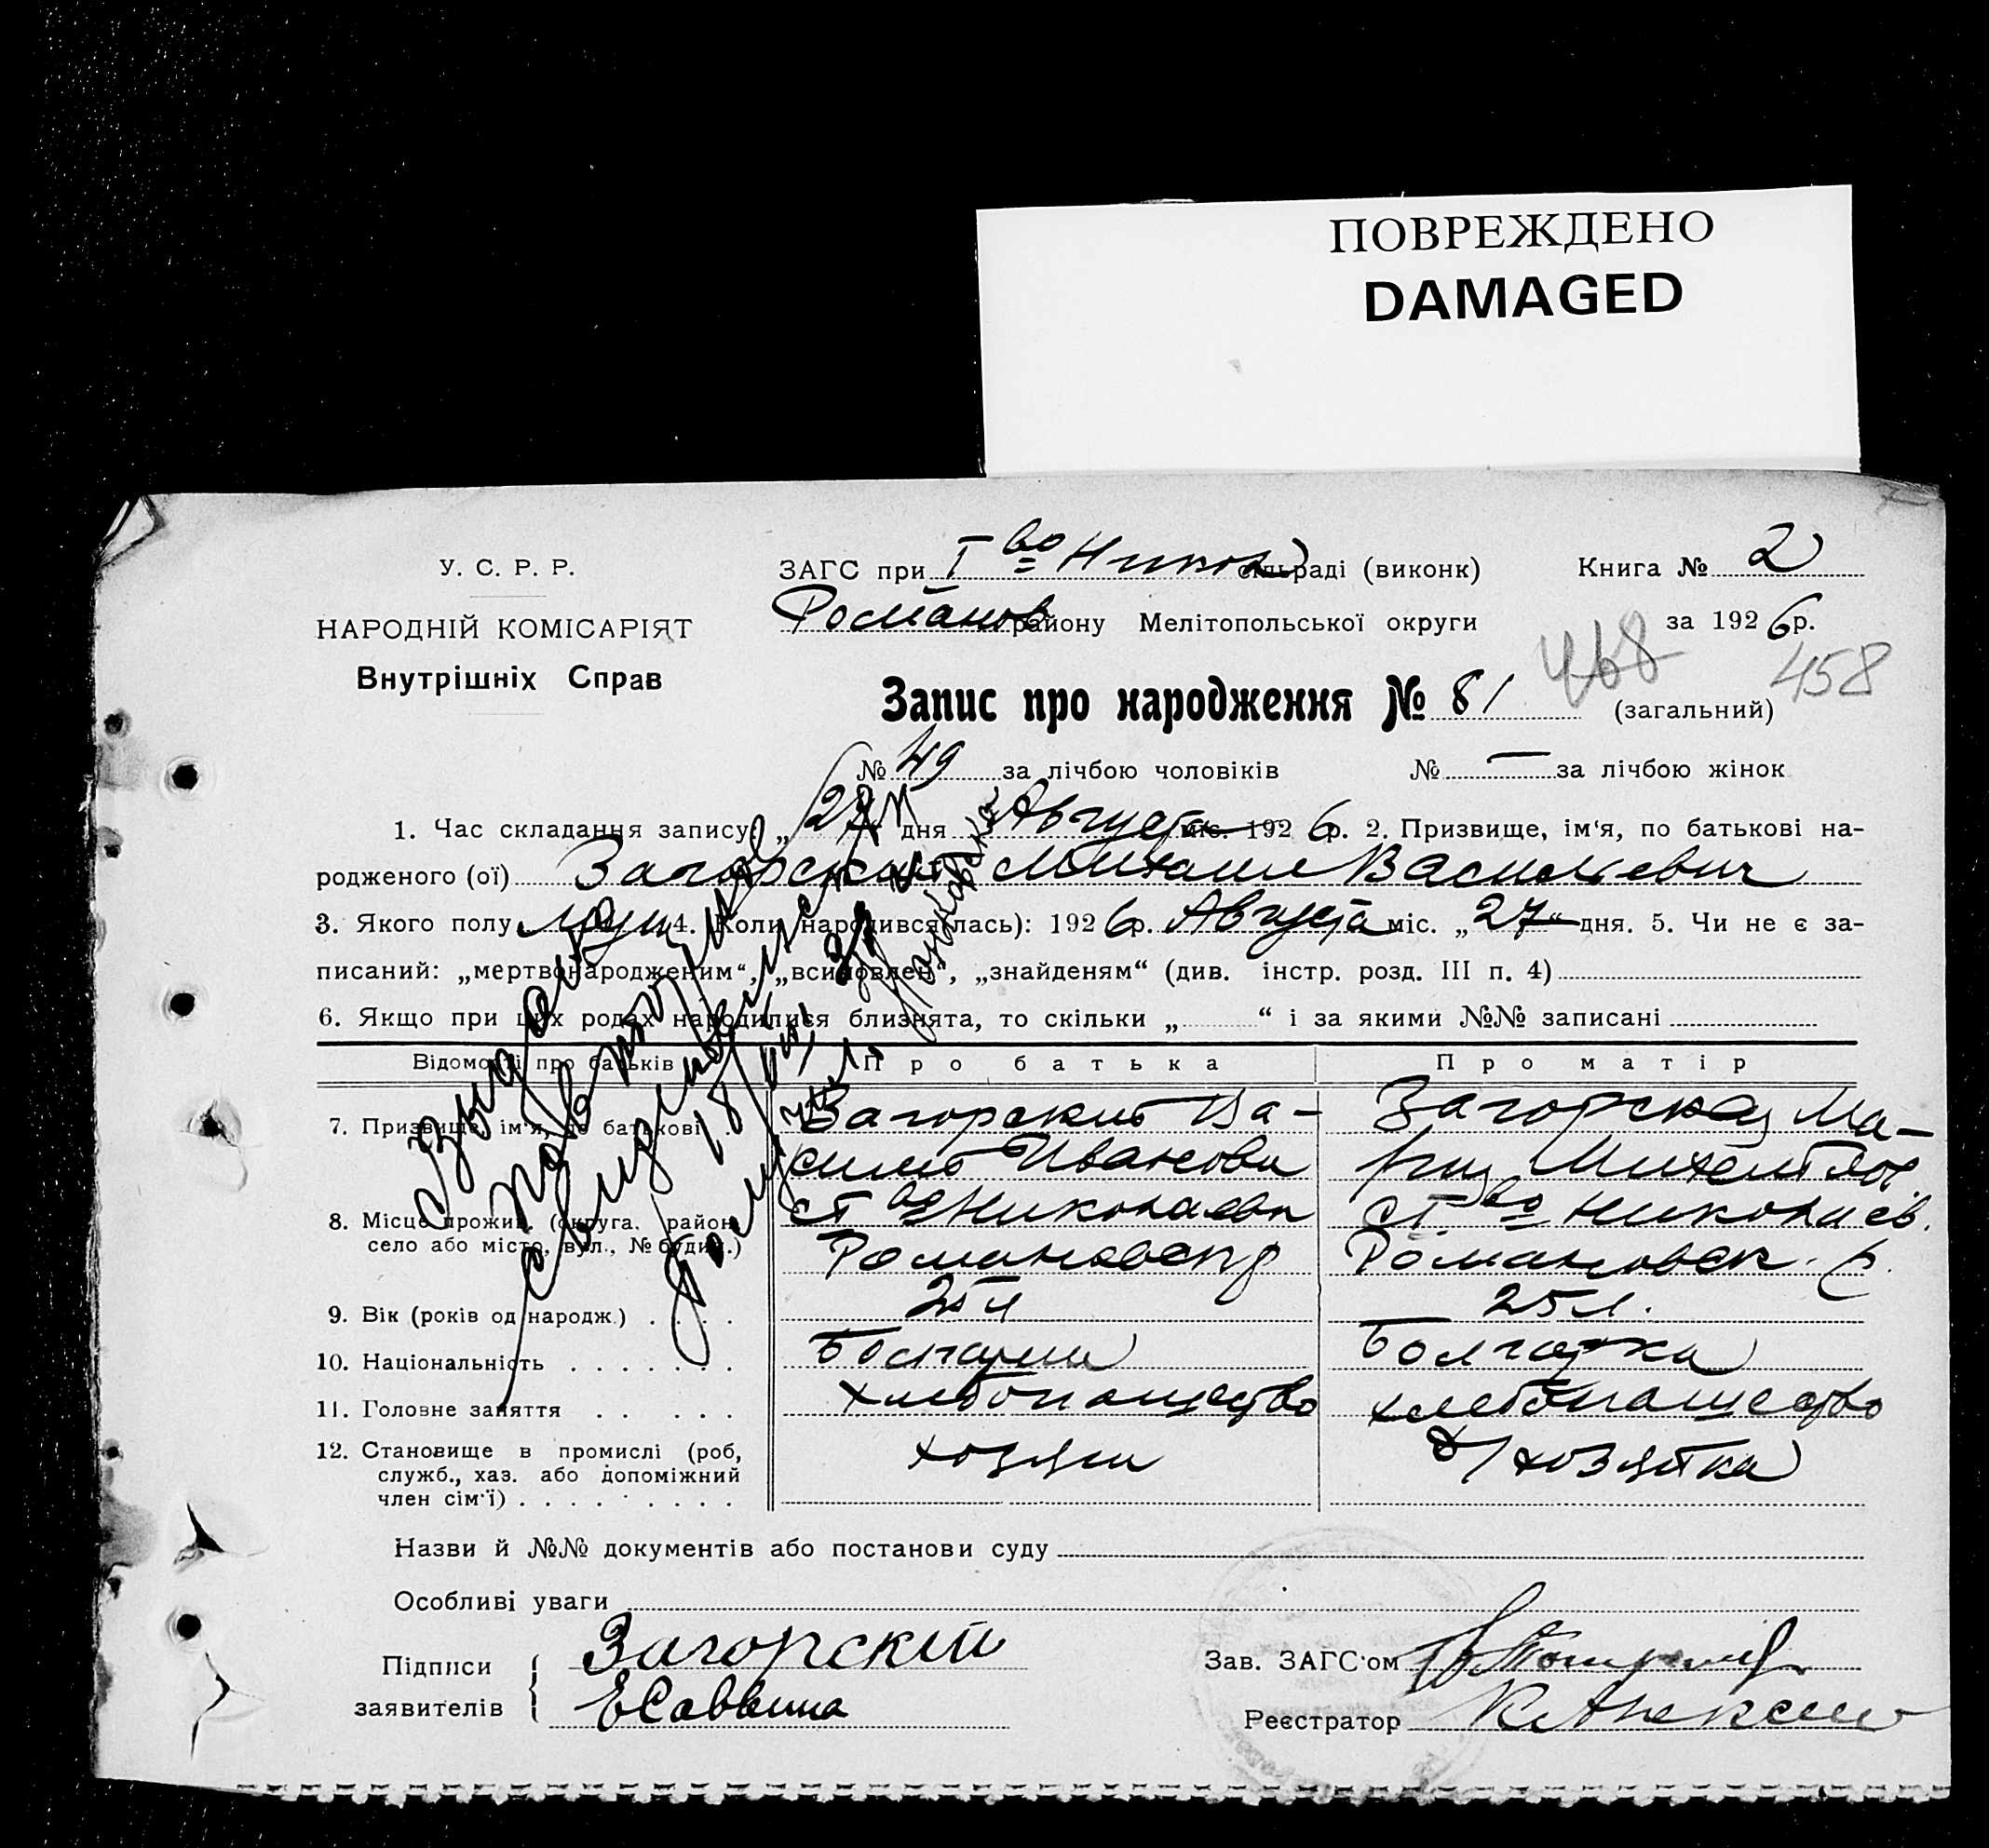 ПОВРЕЖДЕНО
DAMAGED
У. С. Р. Р.
НАРОДНІЙ КОМІСАРІЯТ
Внутрішніх Справ
ЗАГС при І во Никол сільраді (виконк)
Романов району Мелітопольської округи
Книга № 2
за 1926 р.
468
458
Запис про народження № 81
(загальний)
№ 49 за лічбою чоловіків № — за лічбою жінок
1. Час складання запису: „27“ дня Августа міс. 1926 р. 2. Призвище, ім‘я, по батькові на-
родженого (ої) Загорский Михаил Васильевич
3. Якого полу муж 4. Коли народився(лась): 1926 р. Августа міс. „27“ дня. 5. Чи не є за-
писаний: „мертвонародженим“, „всиновлен“, „знайденям“ (див. інстр. розд. III п. 4)
6. Якщо при цих родах народилися близнята, то скільки „ “ і за якими №№ записані
Відомості про батьків
Про батька
Про матір
7. Призвище, ім‘я, по батькові
Загорский Ва-
Загорская Ма-
силий Иванови
рия
8. Місце прожив. (округа, район,
село або місто, вул., № будин.)
во Николаевк
во Николаев.
Романовск р
Романовск. р.
9. Вік (років од народж.)
25 л
25 л.
10. Національність
Болгарин
Болгарка
11. Головне заняття
хлебопашество
хлебопашество
12. Становище в промислі (роб,
служб., хаз. або допоміжний
член сім‘ї)
хозяин
д/хозяйка
Назви й №№ документів або постанови суду
Особливі уваги
Підписи
заявителів
Загорский
ЕСаввина
Зав. ЗАГС‘ом
Реєстратор